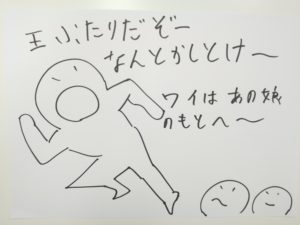 王ふたりだぞー
なんとかしとけ〜
ワイは あの娘
のもとへ〜